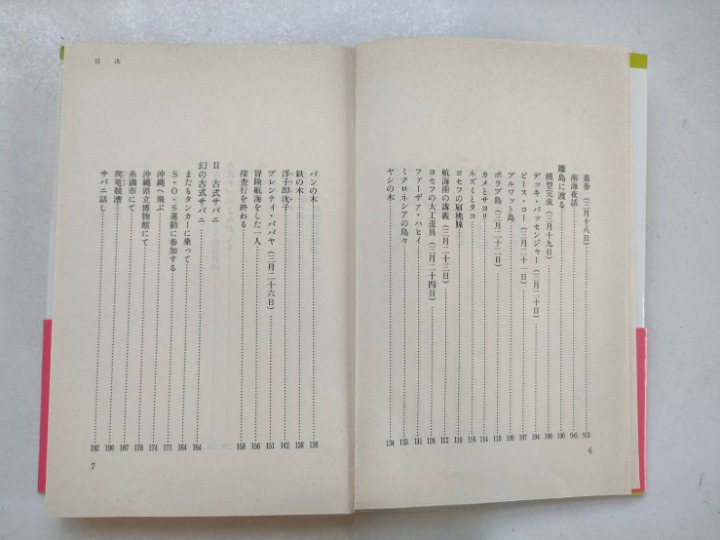 墓参（三月十八日） 93
南海夜話 96
離島に渡る 100
模型完成（三月十九日） 100
デッキ・パッセンジャー（三月二十日） 104
ピース・コー（三月二十一日） 107
プルワット島 109
ポラプ島（三月二十二日）
カメとサヨリ 114
ネズミとタコ 116
ヨセフの扁桃腺 119
航海術の講義（三月二十三日） 122
ヨセフの大工道具（三月二十四日） 126
ファーザア・ハヒイ 131
ミクロネシアの島々 133
ヤシの木 134
6
目次
パンの木 136
鉄の木 138
浮子即沈子 142
プレンティ・パパヤ（三月二十六日） 151
冒険航海をした一人 156
探査行を終わる 158
II 古式サバニ
幻の古式サバニ 164
またもタンカーに乗って 164
S・O・S運動に参加する 171
沖縄へ飛ぶ 174
沖縄県立博物館にて 178
糸満市にて 187
爬竜競漕 190
サバニ話し 192
7